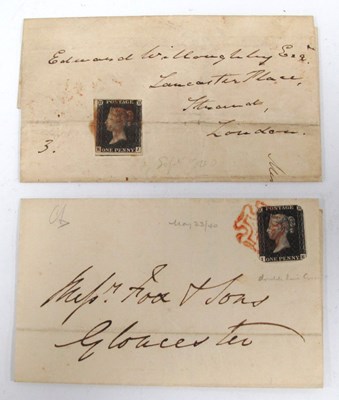 Edward Willoughby Esqr
Lancaster Place,
Strand,
London.
3.
POSTAGE
ONE PENNY
May 23/40
POSTAGE
ONE PENNY
Messrs. Fox & Sons
Gloucester